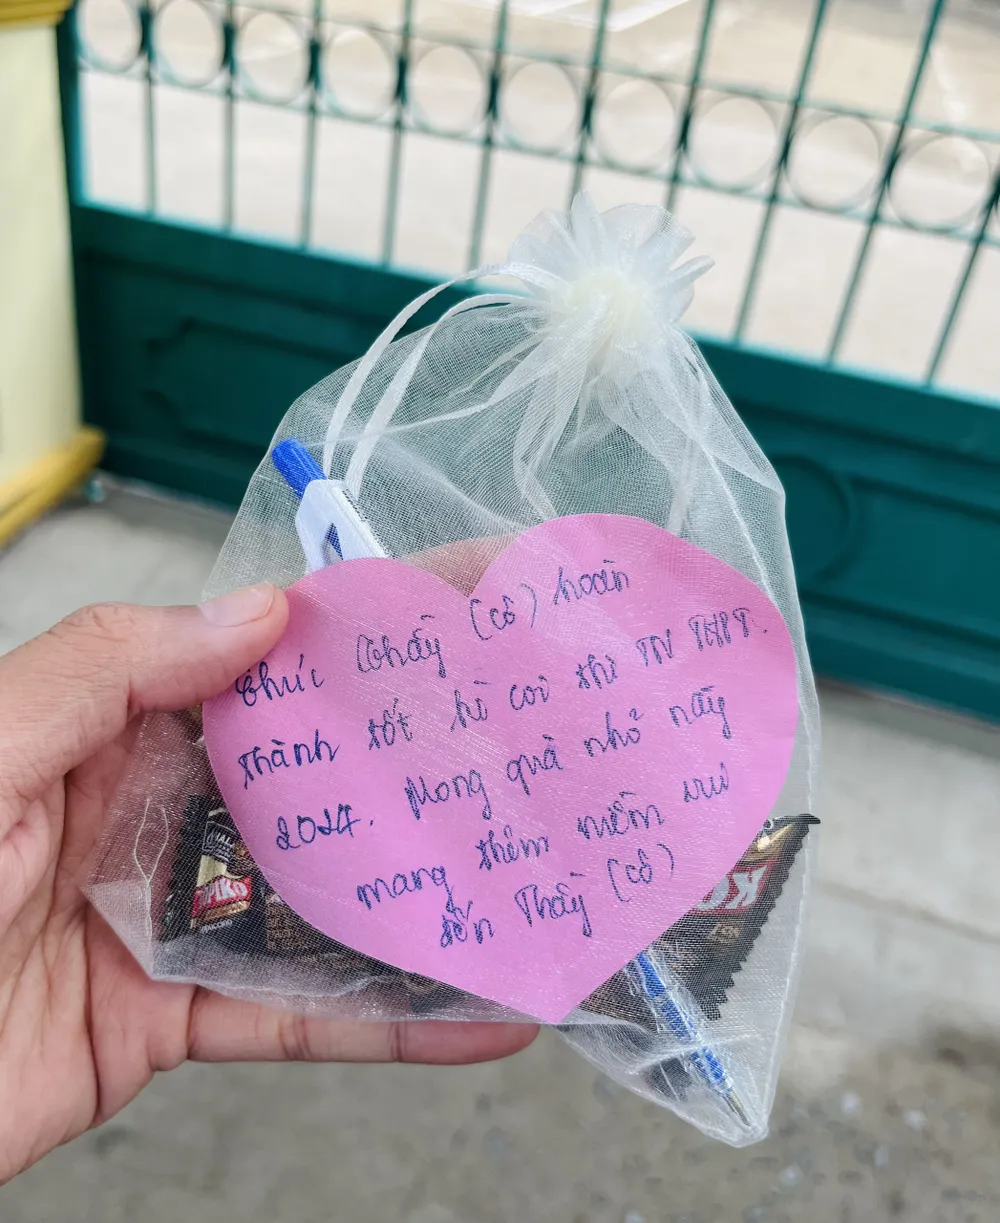 Chúc Thầy (cô) hoàn
thành tốt kì coi thi TN THPT.
2024. Mong quà nhỏ này
mang thêm niềm vui
đến Thầy (cô)
KOPIKO